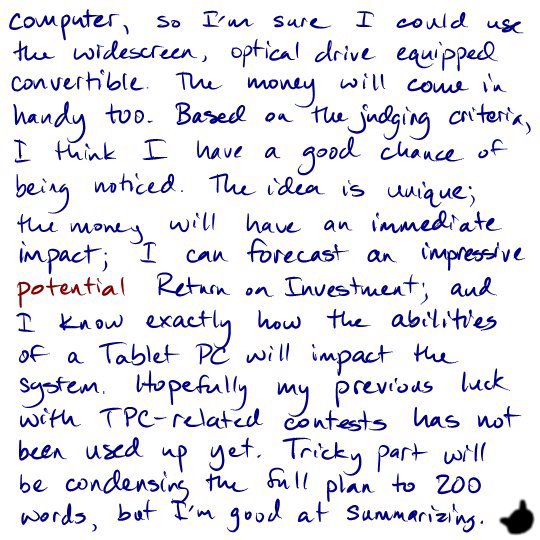 computer, so I'm sure I could use
the widescreen, optical drive equipped
convertible. The money will come in
handy too. Based on the judging criteria,
I think I have a good chance of
being noticed. The idea is unique;
the money will have an immediate
impact; I can forecast an impressive
potential Return on Investment; and
I know exactly how the abilities
of a Tablet PC will impact the
system. Hopefully my previous luck
with TPC-related contests has not
been used up yet. Tricky part will
be condensing the full plan to 200
words, but I'm good at summarizing.